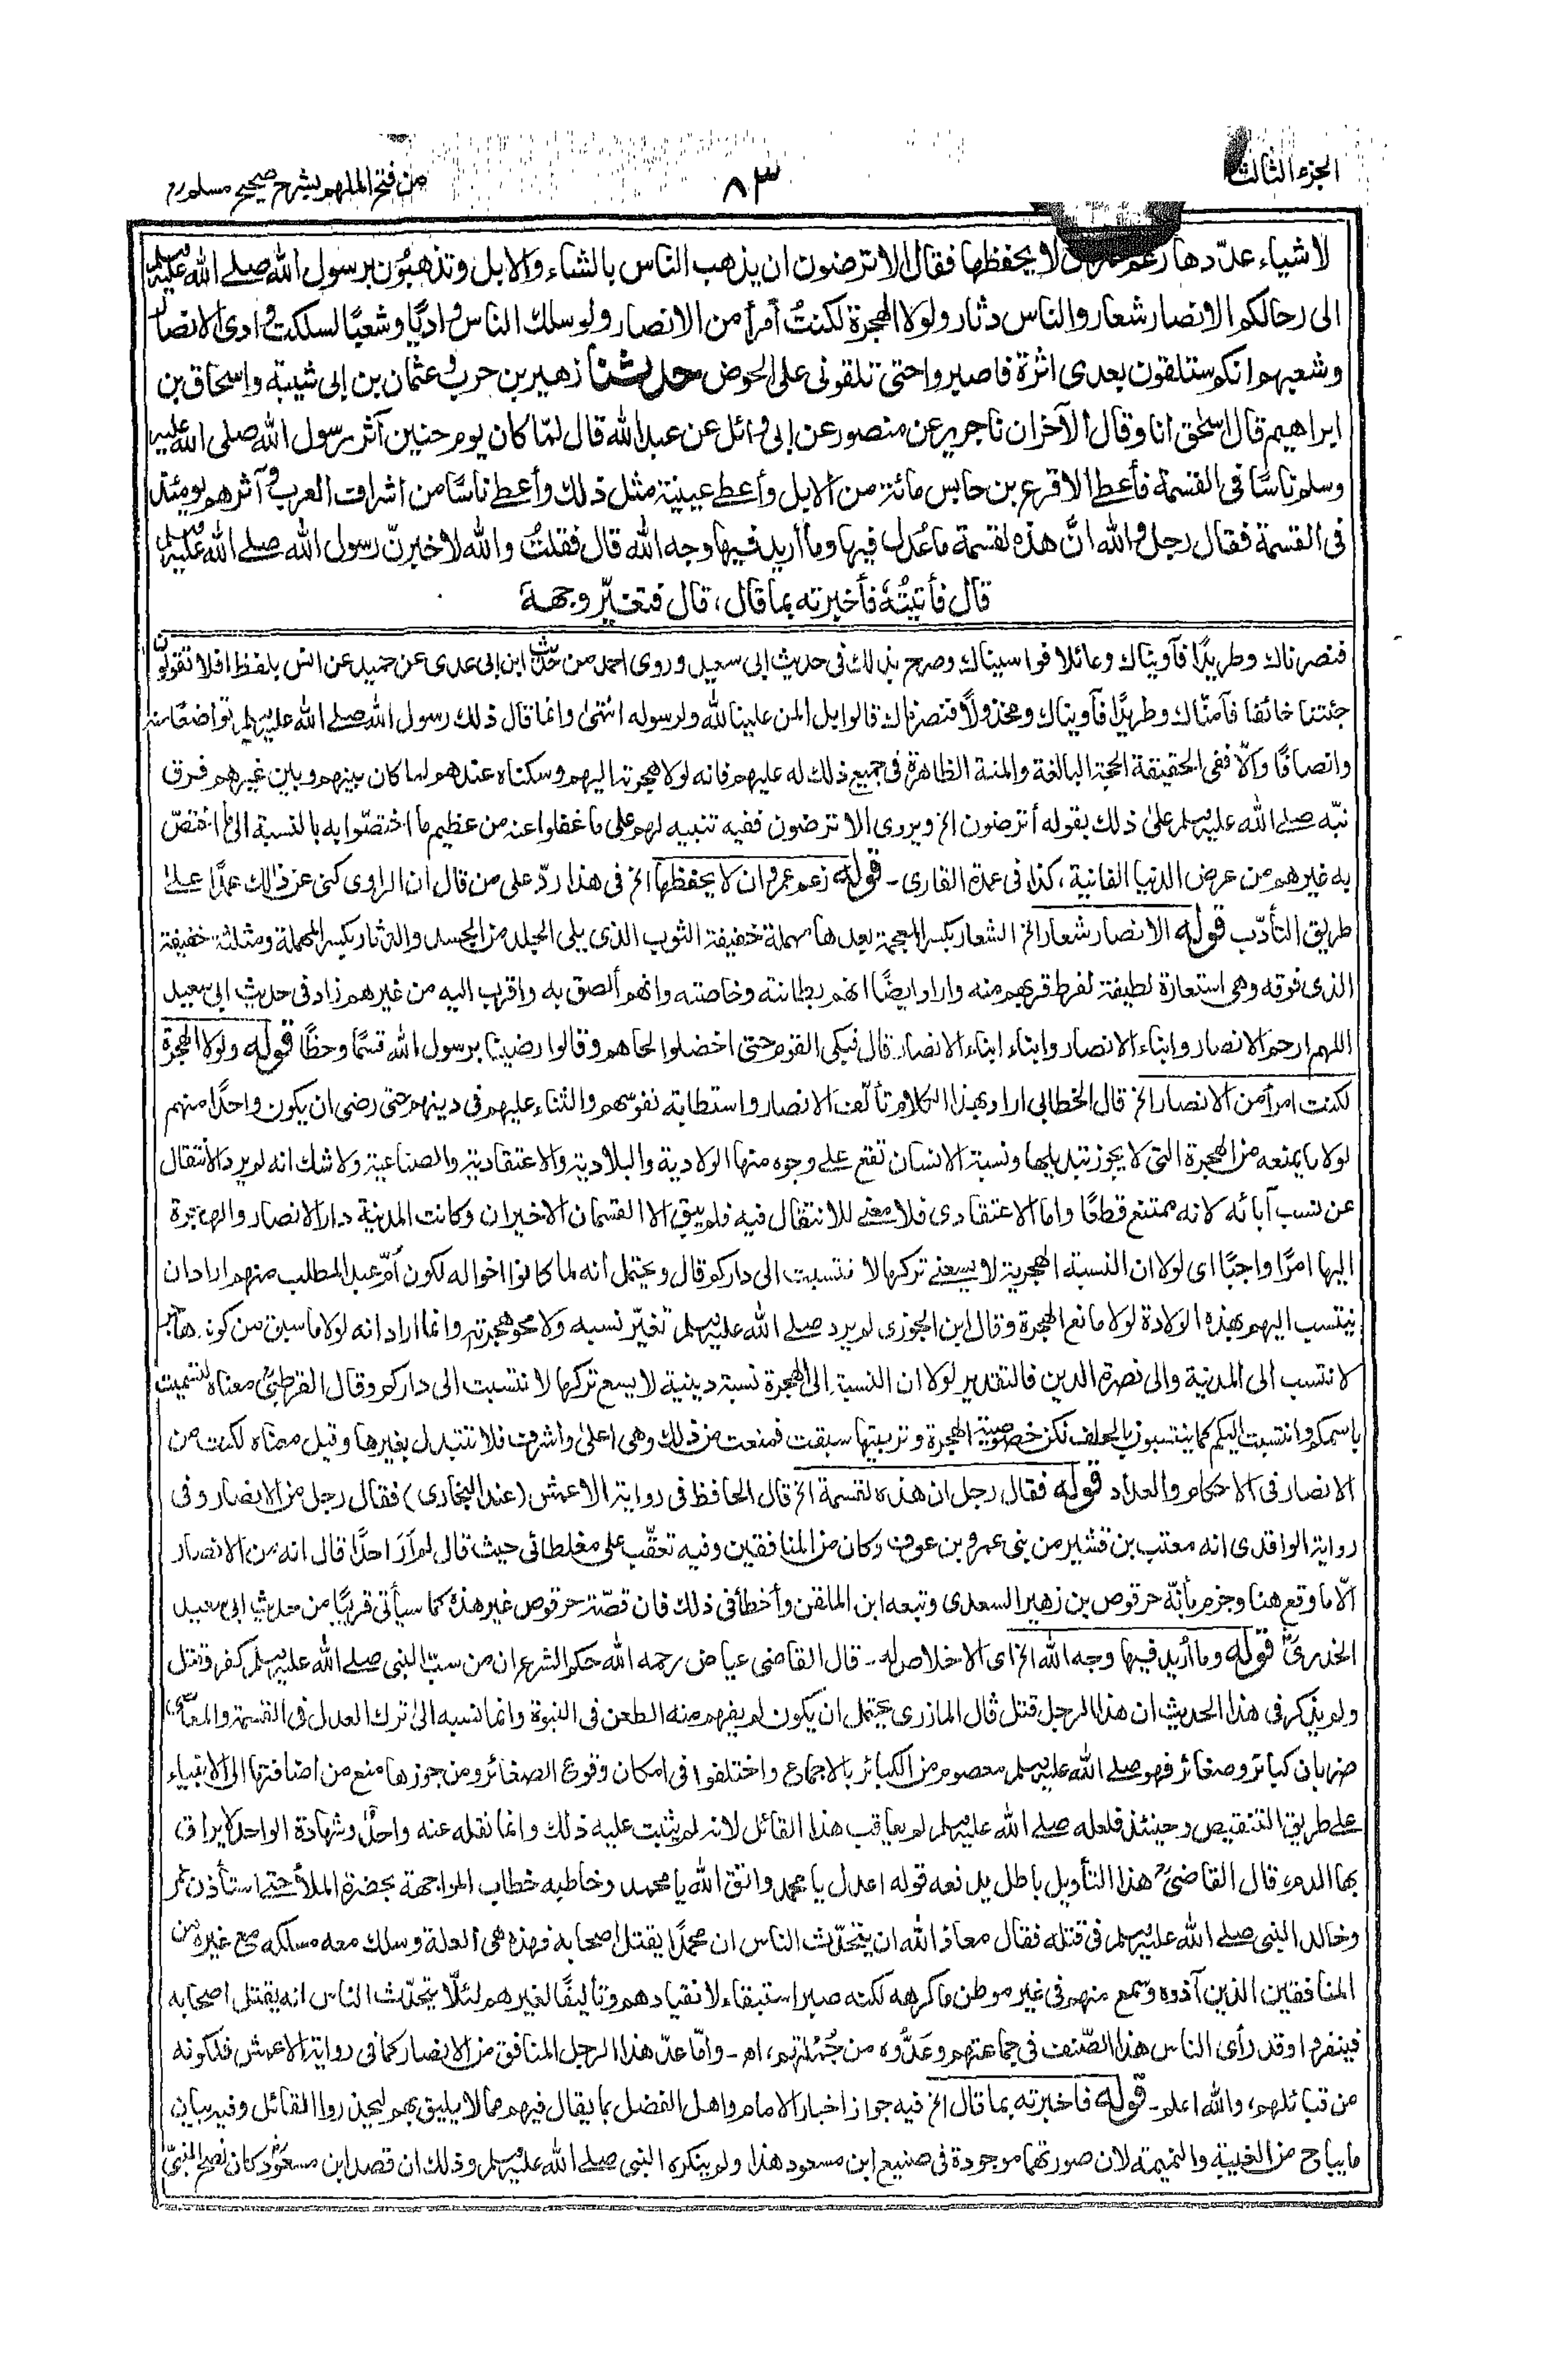 الجزء الثالث
٨٣
من فتح الملهم بشرح صحيح مسلم
لاشياء عدّدها زعم لا يحفظها فقال الا ترضون ان يذهب الناس بالشاء والابل وتذهبُون برسول الله صلے الله عليه وسلم
الى رحالكم الانصار شعار والناس دثار ولولا الهجرة لكنتُ امرأ من الانصار ولو سلك الناس واديًا وشعبًا لسلكت وادى الانصار
وشعبهم انكم ستلقون بعدى اثرة فاصبروا حتى تلقونى على الحوض حدثنا زهير بن حرب وعثمان بن ابى شيبة واسحاق بن
ابراهيم قال اسحٰق انا وقال الآخران نا جرير عن منصور عن ابى وائل عن عبد الله قال لمّا كان يوم حنين آثر رسول الله صلى الله عليه
وسلم ناسًا فى القسمة فأعطے الاقرع بن حابس مائة من الابل وأعطے عيينة مثل ذلك وأعطے ناسًا من اشراف العرب وآثرهم يومئذ
فى القسمة فقال رجل والله انَّ هذه لقسمة ما عُدل فيها وما أريد فيها وجه الله قال فقلتُ والله لاخبرنّ رسول الله صلے الله عليه وسلم
قال فأتيتُهٗ فأخبرته بما قال، قال فتغيّر وجهه
فنصرناك وطريدًا فآويناك وعائلا فواسيناك وصرح بذلك فى حديث ابى سعيد وروى احمد من حديث ابن ابى عدى عن حميد عن انس بلفظ افلا تقولون
جئتنا خائفا فآمنّاك وطريدًا فآويناك ومخذولًا فنصرناك قالوا بل المن علينا لله ولرسوله انتهىٰ وانما قال ذلك رسول الله صلے الله عليه وسلم تواضعًا منه
وانصافًا والّا ففى الحقيقة الحجة البالغة والمنة الظاهرة فى جميع ذلك له عليهم فانه لولا هجرته اليهم وسكناه عندهم لما كان بينهم وبين غيرهم فرق
نبّه صلے الله عليه وسلم علىٰ ذلك بقوله أترضون الخ ويروى الا ترضون ففيه تنبيه لهم على ما غفلوا عنه من عظيم ما اختصّوا به بالنسبة الى ما اختصّ
به غيرهم من عرض الدنيا الفانية، كذا فى عمدة القارى ـ قوله زعم عمرو ان لا يحفظها الخ فى هذا ردّ على من قال ان الراوى كنى عن ذالك عمدًا علے
طريق التأدّب قوله الانصار شعار الخ الشعار بكسر المعجمة بعدها مهملة خفيفة الثوب الذى يلى الجلد من الجسد والدثار بكسر المهملة ومثلثة خفيفة
الذى فوقه وهى استعارة لطيفة لفرط قربهم منه واراد ايضًا انهم بطانته وخاصته وانهم ألصق به واقرب اليه من غيرهم زاد فى حديث ابى سعيد
اللهم ارحم الانصار وابناء الانصار وابناء ابناء الانصار قال فبكى القوم حتى اخضلوا لحاهم وقالوا رضينا برسول الله قسمًا وحظًا قوله ولولا الهجرة
لكنت امرأ من الانصار الخ قال الخطابى اراد بهذا الكلام تألّف الانصار واستطابة نفوسهم والثناء عليهم فى دينهم حتى رضى ان يكون واحدًا منهم
لولا ما يمنعه من الهجرة التى لا يجوز تبديلها ونسبة الانسان تقع علے وجوه منها الولادية والبلادية والاعتقادية والصناعية ولا شك انه لم يرد الانتقال
عن نسب آبائه لانه ممتنع قطعًا واما الاعتقادى فلا معنے للانتقال فيه فلم يبق الا القسمان الاخيران وكانت المدينة دار الانصار والهجرة
اليها امرًا واجبًا اى لولا ان النسبة الهجرية لا يسعنے تركها لانتسبت الى داركم قال ويحتمل انه لما كانوا اخواله لكون اُمّ عبد المطلب منهم اراد ان
ينتسب اليهم بهذه الولادة لولا مانع الهجرة وقال ابن الجوزى لم يرد صلے الله عليه وسلم تغيّر نسبه ولا محو هجرته وانما اراد انه لولا ما سبق من كونه هاجر
لانتسب الى المدينة والى نصرة الدين فالتقدير لولا ان النسبة الى الهجرة نسبة دينية لا يسع تركها لانتسبت الى داركم وقال القرطبى معناه لتسميت
باسمكم وانتسبت اليكم كما ينتسبون بالحلف لكن خصوصية الهجرة وتربيتها سبقت فمنعت من ذلك وهى اعلىٰ واشرف فلا تتبدل بغيرها وقيل معناه لكنت من
الانصار فى الاحكام والعداد قوله فقال رجل ان هذه لقسمة الخ قال الحافظ فى رواية الاعمش (عند البخارى) فقال رجل من الانصار وفى
رواية الواقدى انه معتب بن قشير من بنى عمرو بن عوف وكان من المنافقين وفيه تعقّب على مغلطائى حيث قال لم أرَ احدًا قال انه من الانصار
الّا ما وقع هنا وجزم بأنّه حرقوص بن زهير السعدى وتبعه ابن الملقن وأخطأ فى ذلك فان قصّة حرقوص غير هذه كما سيأتى قريبًا من حديث ابى سعيد
الخدرى قوله وما أريد فيها وجه الله الخ اى الاخلاص له ـ قال القاضى عياض رحمه الله حكم الشرع ان من سبّ النبى صلے الله عليه وسلم كفر وقتل
ولم يذكر فى هذا الحديث ان هذا الرجل قتل قال المازرى يحتمل ان يكون لم يفهم منه الطعن فى النبوة وانما نسبه الىٰ ترك العدل فى القسمة والمعاصى
ضربان كبائر وصغائر فهو صلے الله عليه وسلم معصوم من الكبائر بالاجماع واختلفوا فى امكان وقوع الصغائر ومن جوزها منع من اضافتها الى الانبياء
علے طريق التنقيص وحينئذ فلعله صلے الله عليه وسلم لم يعاقب هذا القائل لانه لم يثبت عليه ذلك وانما نقله عنه واحدٌ وشهادة الواحد لا يراق
بها الدم، قال القاضى هذا التأويل باطل يدفعه قوله اعدل يا محمد واتق الله يا محمد وخاطبه خطاب المواجهة بحضرة الملأ حتے استأذن عمر
وخالد النبى صلے الله عليه وسلم فى قتله فقال معاذ الله ان يتحدّث الناس ان محمدًا يقتل اصحابه فهذه هى العلة وسلك معه مسلكه مع غيره من
المنافقين الذين آذوه وسمع منهم فى غير موطن ما كرهه لكنه صبر استبقاء لانقيادهم وتأليفًا لغيرهم لئلّا يتحدّث الناس انه يقتل اصحابه
فينفروا وقد رأى الناس هذا الصّنف فى جماعتهم وعَدُّوه من جُملتهم، اھ ـ وامّا عدّ هذا الرجل المنافق من الانصار كما فى رواية الاعمش فلكونه
من قبائلهم، والله اعلم ـ قوله فاخبرته بما قال الخ فيه جواز اخبار الامام واهل الفضل بما يقال فيهم مما لا يليق بهم ليحذروا القائل وفيه بيان
ما يباح من الغيبة والنميمة لان صورتهما موجودة فى صنيع ابن مسعود هذا ولم ينكره النبى صلے الله عليه وسلم وذلك ان قصد ابن مسعود كان نصح النبى